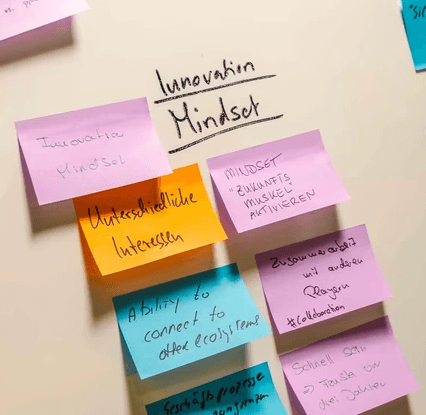 Innovation
Mindset
Innovation
Mindset
Unterschiedliche
Interessen
MINDSET
"ZUKUNFTS
MUSKEL"
AKTIVIEREN
Ability to
connect to
other ecosystems
Zusammenarbeit
mit anderen
Playern
#Collaboration
Schnell sein
Geschäftsprozesse